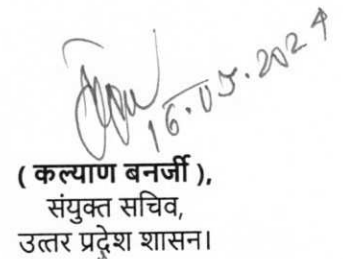 16.05.2024
( कल्याण बनर्जी ),
संयुक्त सचिव,
उत्तर प्रदेश शासन।